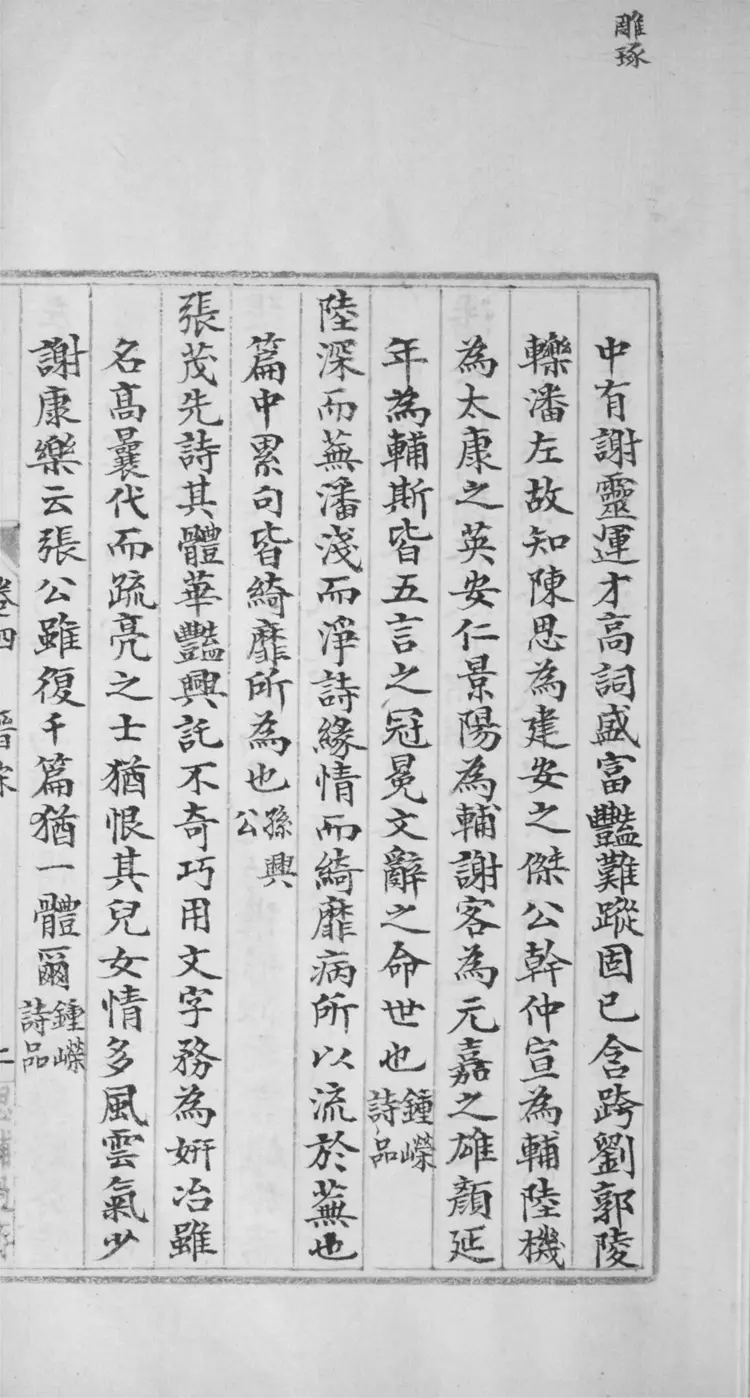 雕琢
中有謝靈運才高詞盛富豔難蹤固已含跨劉郭陵
轢潘左故知陳思為建安之傑公幹仲宣為輔陸機
為太康之英安仁景陽為輔謝客為元嘉之雄顏延
年為輔斯皆五言之冠冕文辭之命世也鍾嶸詩品
陸深而蕪潘淺而淨詩緣情而綺靡病所以流於蕪也
篇中累句皆綺靡所為也孫興公
張茂先詩其體華豔興託不奇巧用文字務為妍冶雖
名高曩代而疏亮之士猶恨其兒女情多風雲氣少
謝康樂云張公雖復千篇猶一體爾鍾嶸詩品
卷四 晉宋